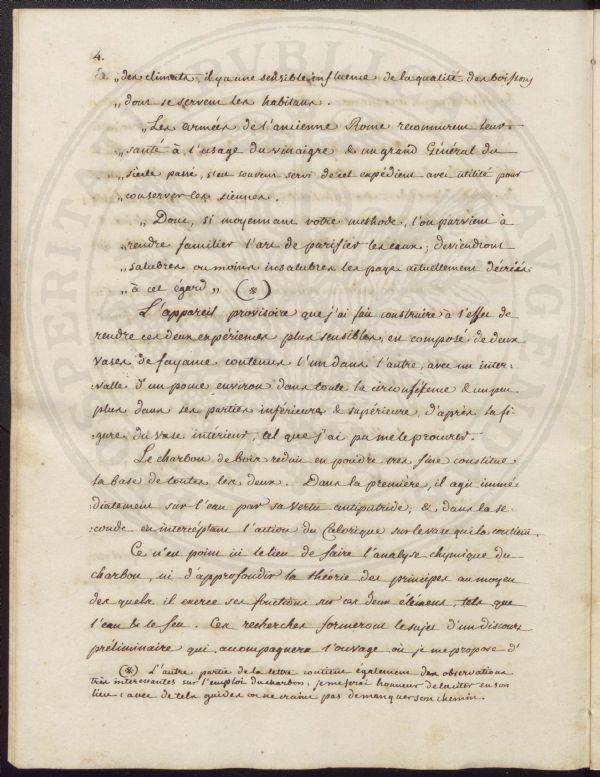 4.
„des climats, il y a une sensible influence de la qualité des boissons
„dont se servent les habitans.
„Les armées de l'ancienne Rome reconnurent leur
„santé à l'usage du vinaigre & un grand Général du
„siècle passé, s'est souvent servi de cet expédient avec utilité pour
„conserver les siennes.
„Donc, si moyennant votre methode, l'on parvient à
„rendre familier l'art de purifier les eaux; deviendront
„salubres ou moins insalubres les pays actuellement décriés
„à cet égard„ (*)
L'appareil provisoire que j'ai fait construire à l'effet de
rendre ces deux expériences plus sensibles, est composé de deux
vases de fayance contenus l'un dans l'autre, avec un inter-
-valle d'un pouce environ dans toute la circonférence & un peu
plus dans ses parties inférieure & supérieure, d'après la fi-
-gure du vase intérieur, tel que j'ai pu me le procurer.
Le charbon de bois réduit en poudre très fine constitue
la base de toutes les deux. Dans la première, il agit immé-
diatement sur l'eau par sa vertu antiputride; &, dans la se-
conde en intercéptant l'action du Calorique sur le vase qui la contient.
Ce n'est point ici le lieu de faire l'analyse chymique du
charbon, ni d'approfondir la théorie des principes au moyen
des quels il exerce ses fonctions sur ces deux élémens, tels que
l'eau & le feu. Ces recherches formeront le sujet d'un discours
préliminaire qui accompagnera l'ouvrage où je me propose d'
(*) L'autre partie de la lettre contient également des observations
très intéressantes sur l'emploi du charbon; je me ferai honneur de la citer en son
lieu: avec de tels guides on ne craint pas de manquer son chemin.
PROSPERITATI PVBLICAE AVGENDAE